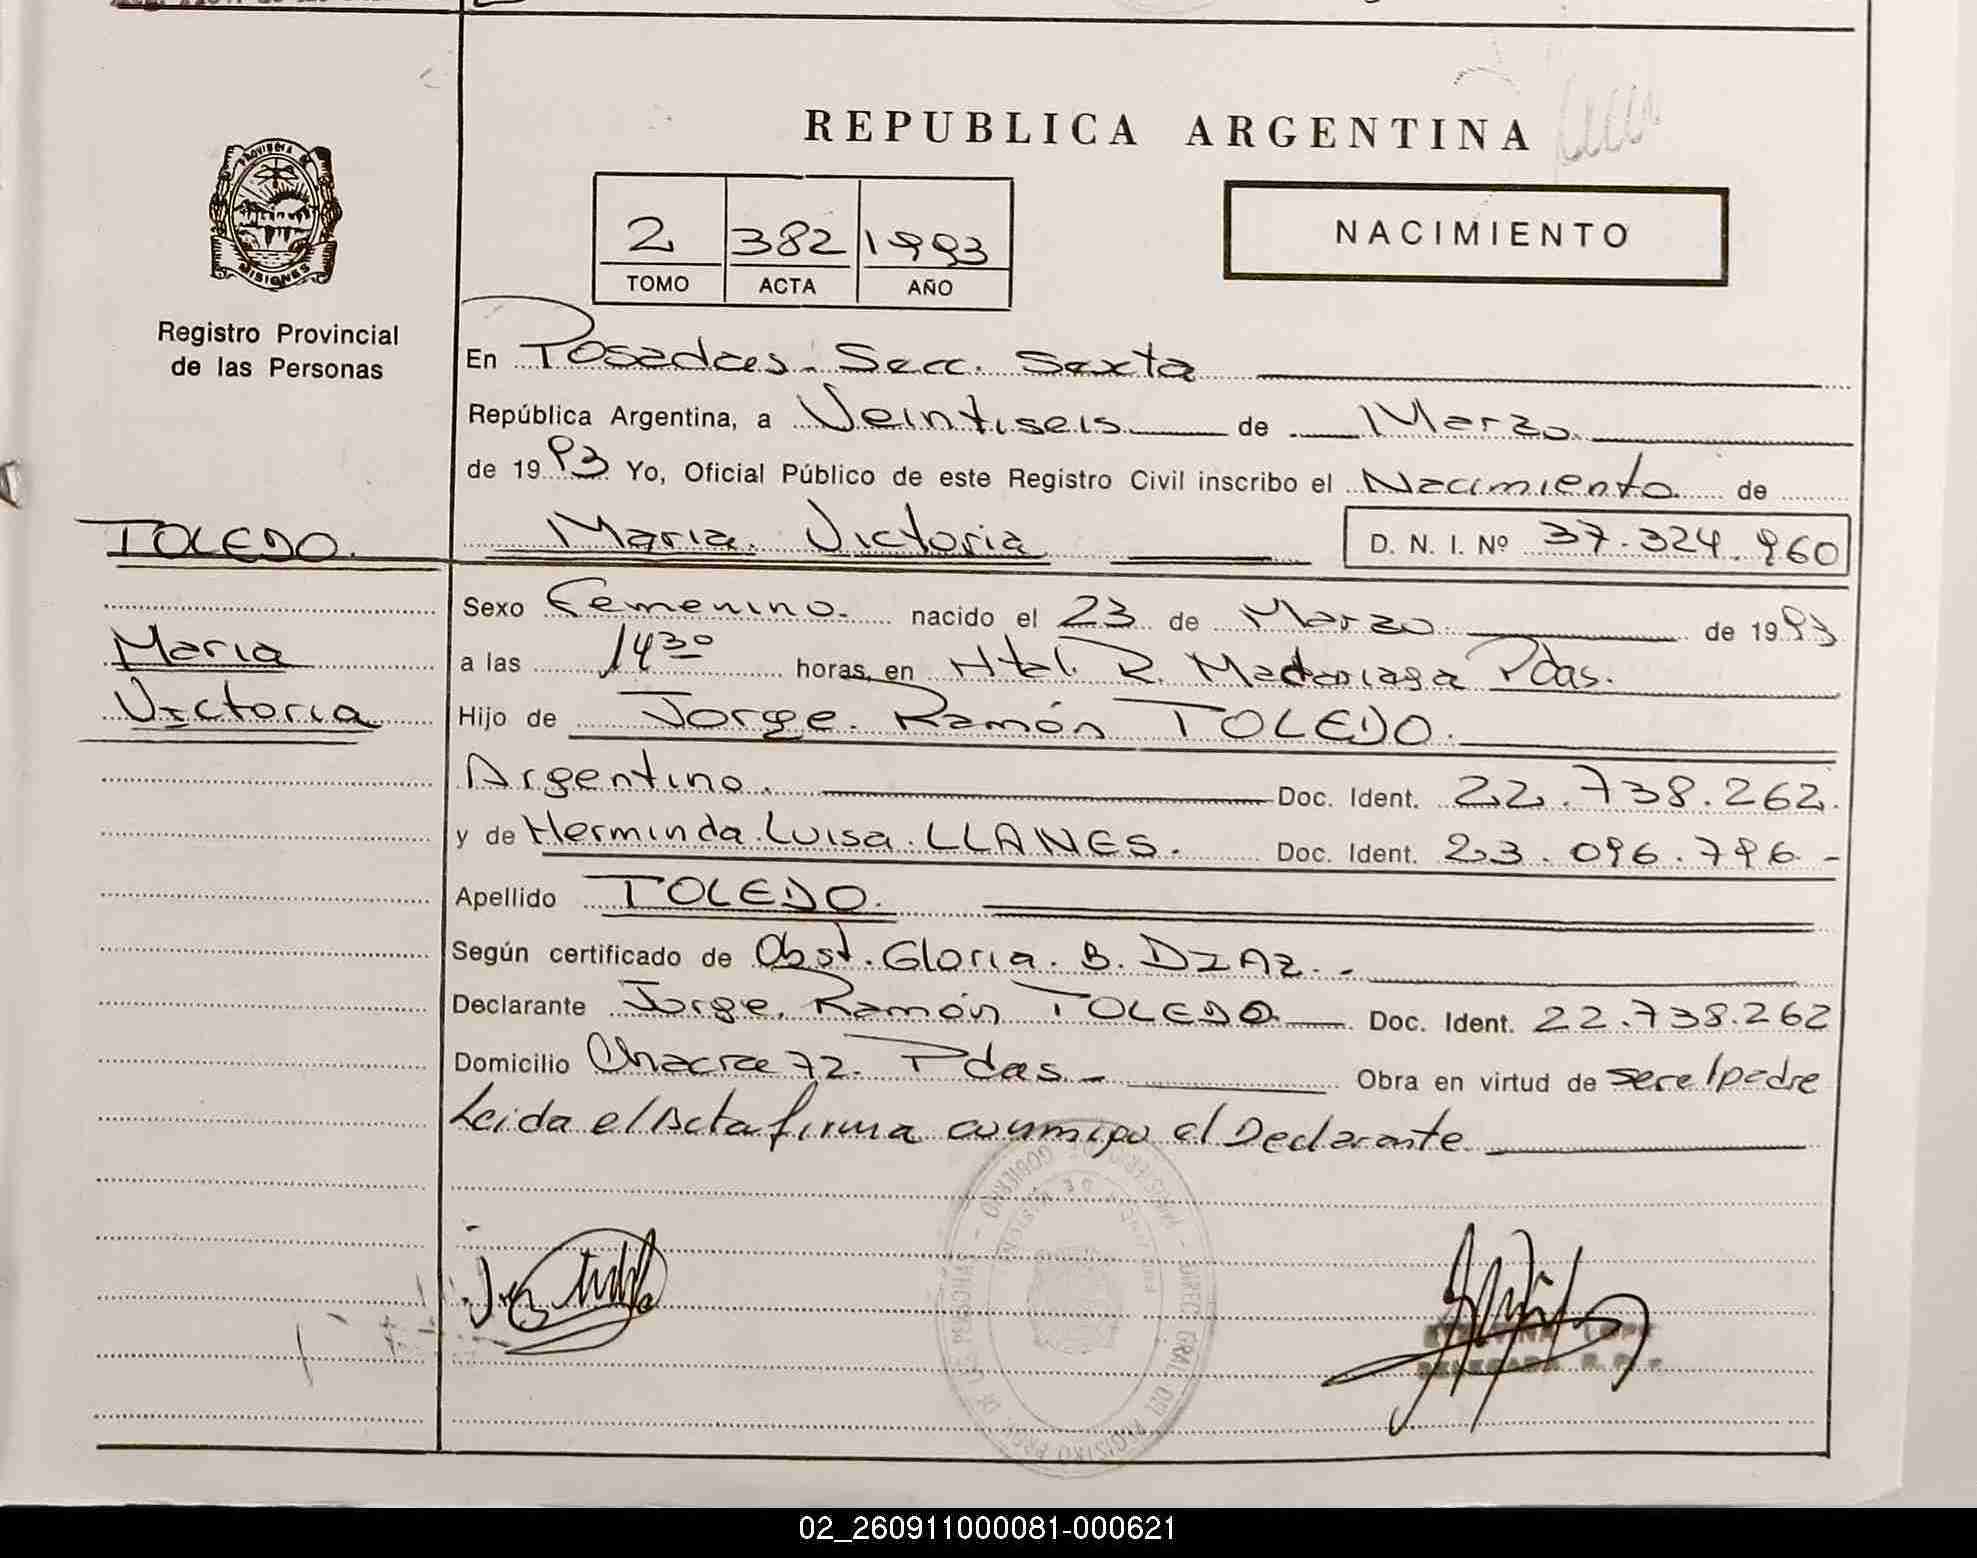 REPUBLICA ARGENTINA
PROVINCIA DE
MISIONES
Registro Provincial
de las Personas
2 382 1993
TOMO ACTA AÑO
NACIMIENTO
En Posadas. Secc. Sexta
República Argentina, a Veintiseis de Marzo.
de 1993 Yo, Oficial Público de este Registro Civil inscribo el Nacimiento de
TOLEDO.
Maria Victoria D. N. I. Nº 37.324.960
Sexo Femenino. nacido el 23 de Marzo de 1993
Maria
a las 14 30 horas, en Htal. R. Madariaga Pdas.
Victoria
Hijo de Jorge Ramón TOLEDO.
Argentino. Doc. Ident. 22.738.262.
y de Herminda Luisa LLANES. Doc. Ident. 23.096.796-
Apellido TOLEDO.
Según certificado de Obst. Gloria. B. DIAZ.-
Declarante Jorge Ramón TOLEDO Doc. Ident. 22.738.262
Domicilio Chacra 72. Pdas.- Obra en virtud de ser el padre
Leida el Acta firma conmigo el Declarante
02_260911000081-000621